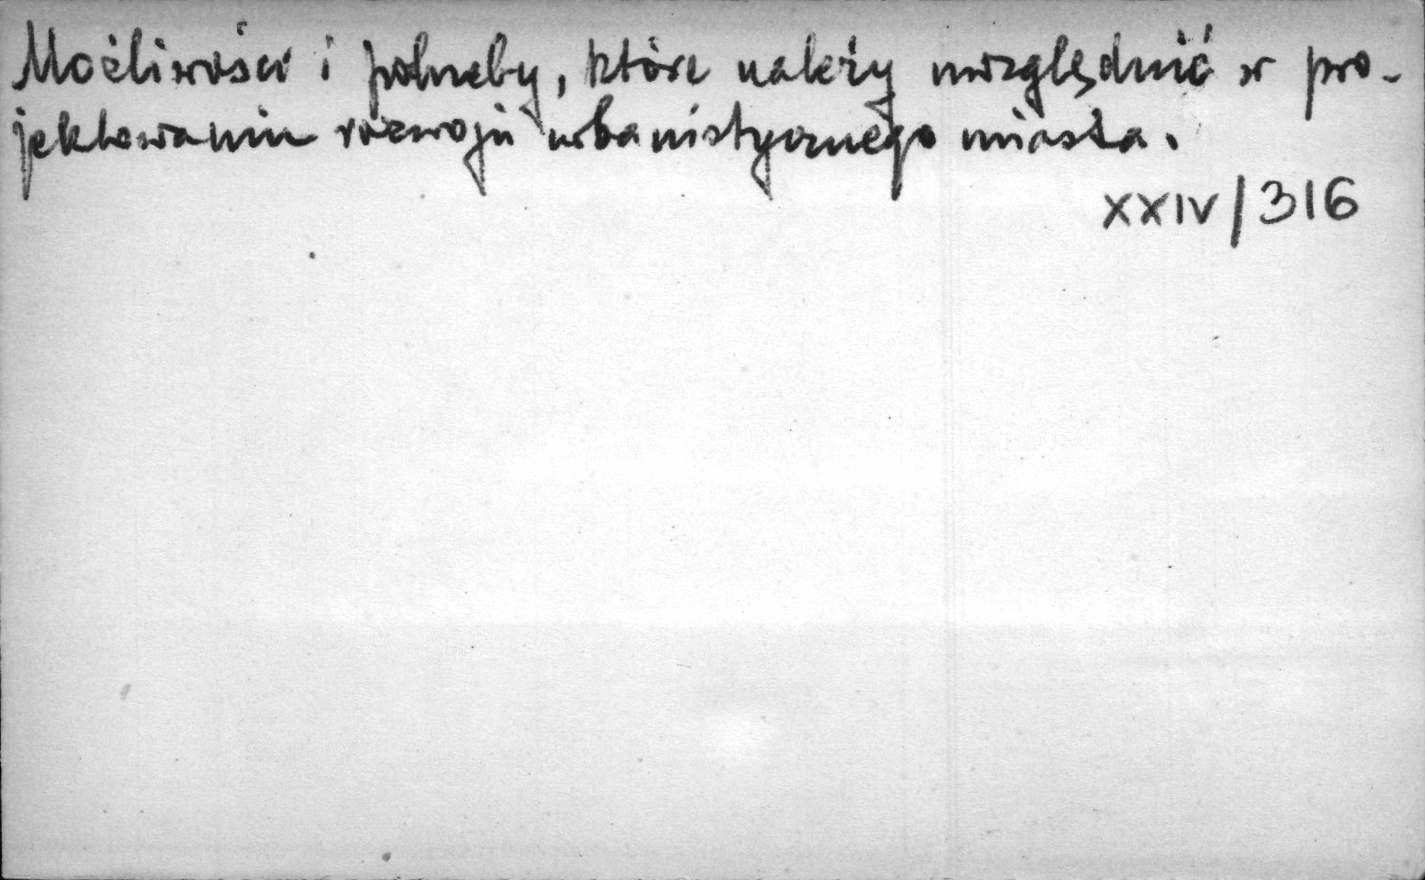 Możliwości i potrzeby, które należy uwzględnić w pro-
jektowaniu rozwoju urbanistycznego miasta.
XXIV/316